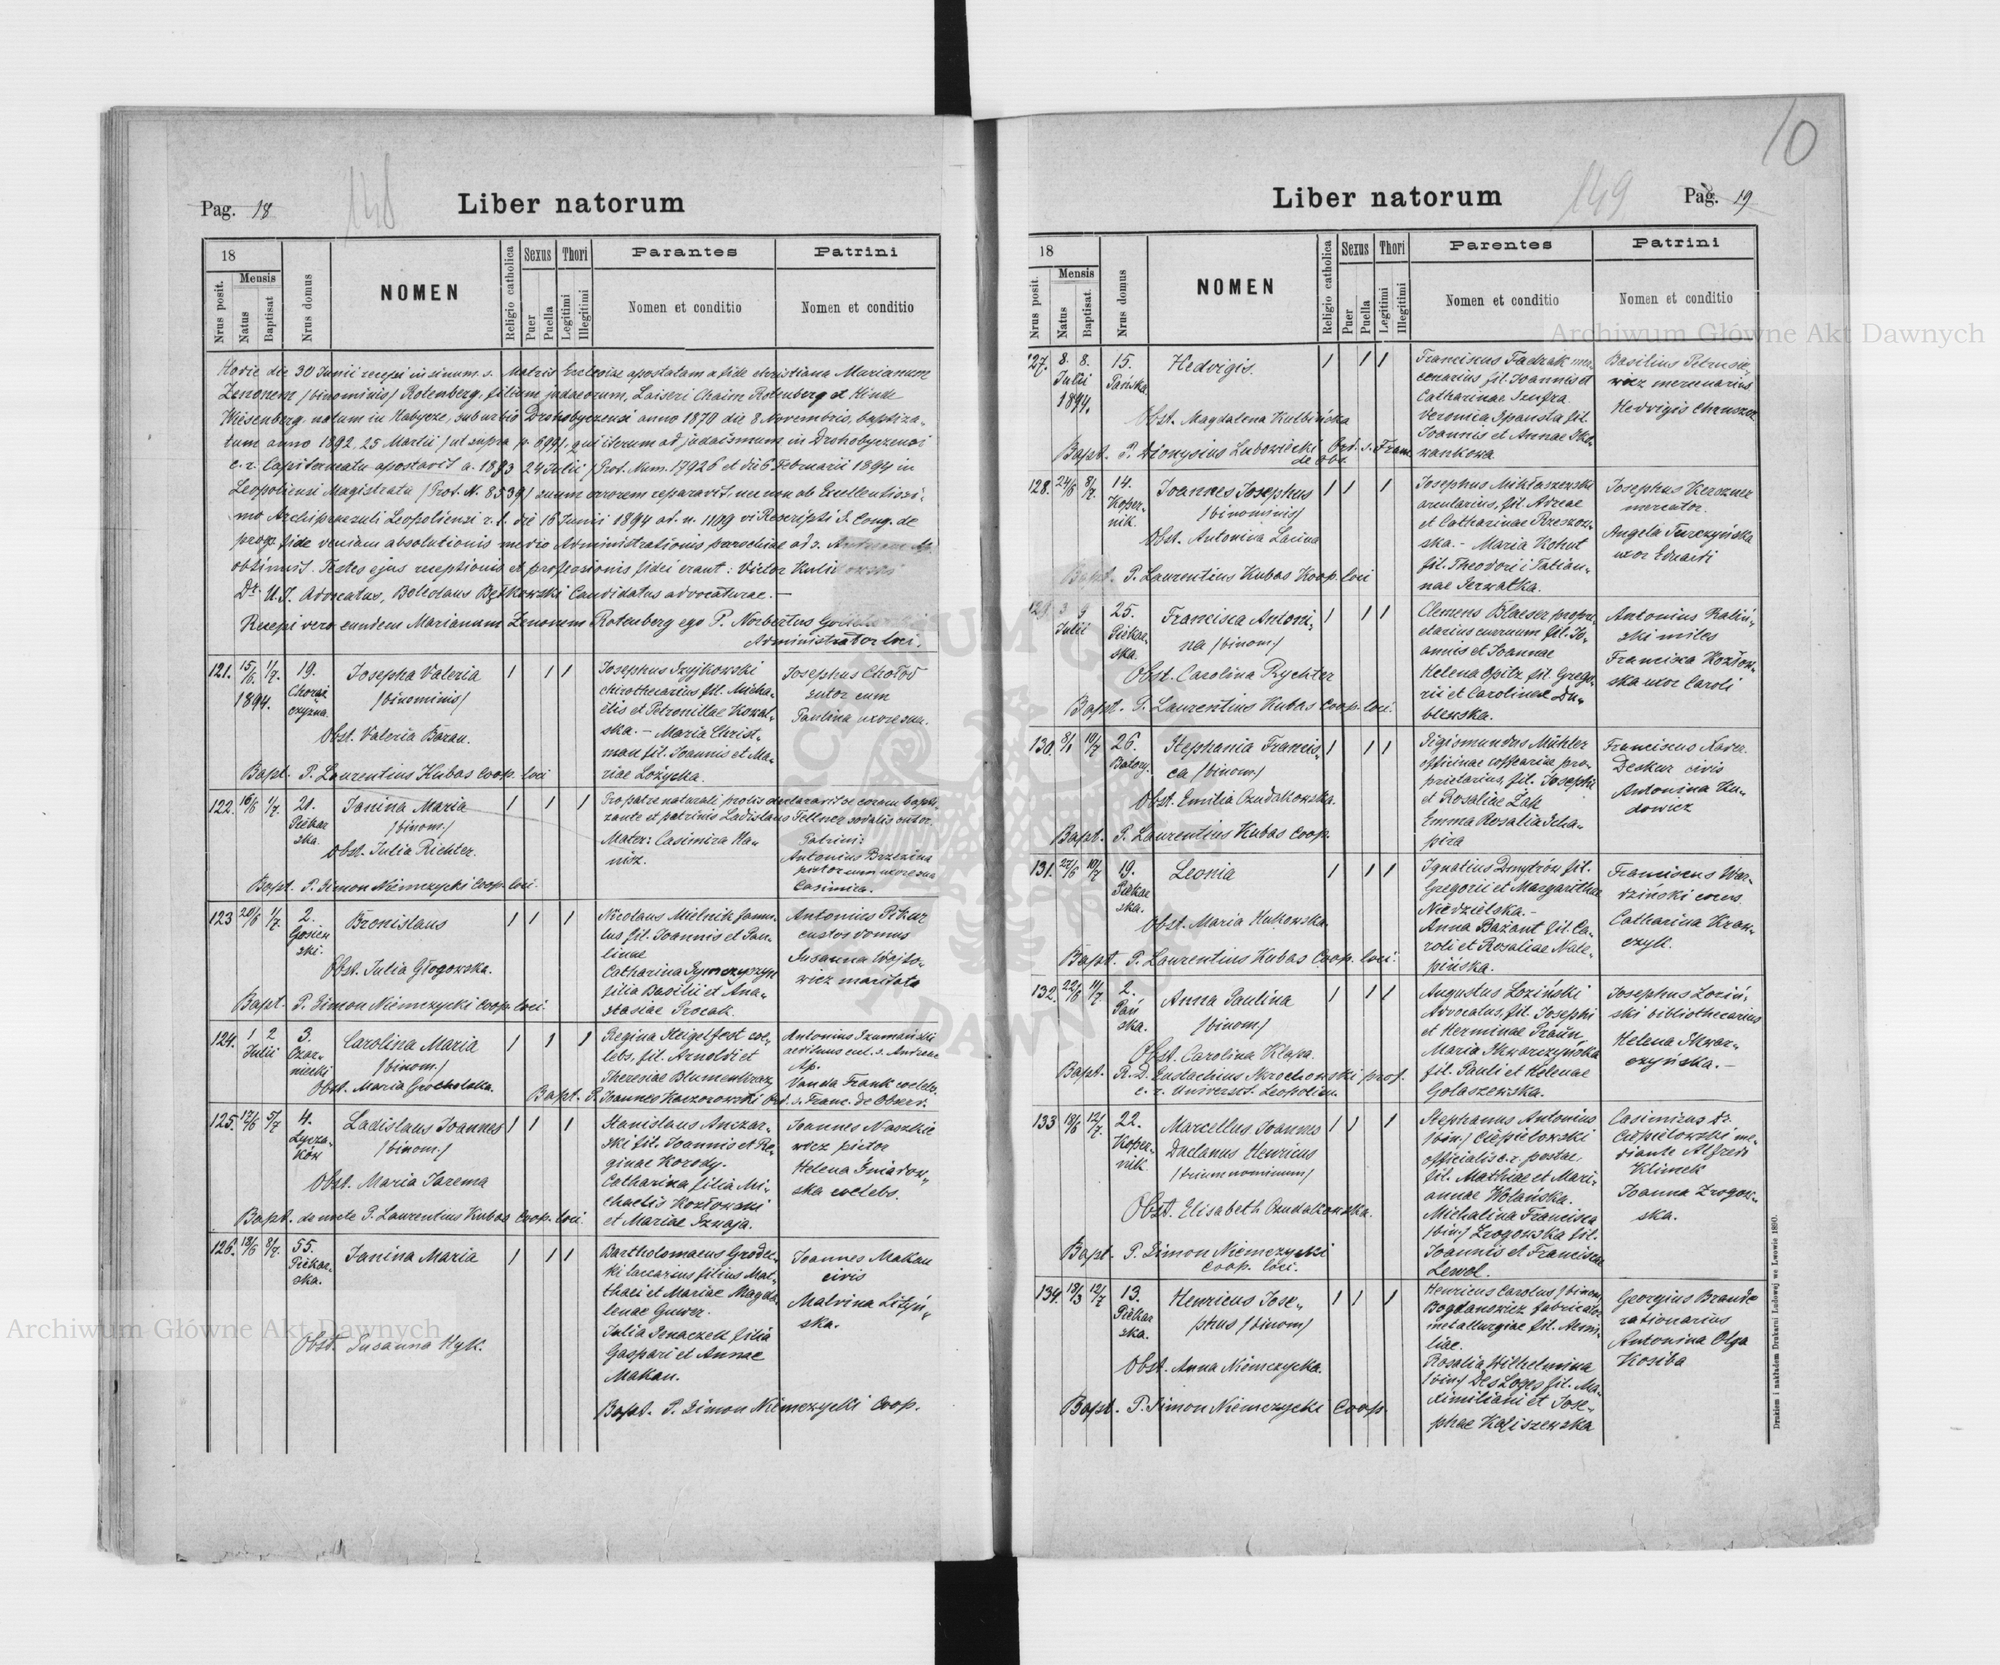 Pag. 18
148
Liber natorum
18
Mensis
Nrus posit.
Natus
Baptisat
Nrus domus
NOMEN
Religio catholica
Sexus
Puer
Puella
Thori
Legitimi
Illegitimi
Parantes
Nomen et conditio
Patrini
Nomen et conditio
Hodie die 30 Junii recepi in sinum s. Matris Ecclesiae apostatam a fide christiana Marianum
Zenonem /binominis/ Rotenberg, filium judaeorum, Laiseri Chaim Rotenberg et Hinde
Wiesenberg natum in Zabycze, suburbio Drohobyczensi anno 1870 die 8 Novembris, baptiza-
tum anno 1892. 25 Martii /ut supra p. 699/, qui iterum ad judaismum in Drohobyczensi
c. r. Capitaneatu apostavit a. 1893 24 Julii /Prot. Num. 17926 et die 6 Februarii 1894 in
Leopoliensi Magistratu /Prot. N. 8539/ suum errorem reparavit, nec non ab Excellentissi-
mo Archipraesuli Leopoliensi r. l. die 16 Junii 1894 ad. n. 1109 vi Rescripti S. Cong. de
prop. fide veniam absolutionis medio Administrationis parochiae ad s.
obtinuit. Testes ejus receptionis et professionis fidei erant: Victor
Dr. U. J. Advocatus, Boleslaus Bętkowski Candidatus advocaturae. —
Recepi vero eundem Marianum Zenonem Rotenberg ego P. Norbertus
Administrator loci.
121. 15/6. 1/7. 1894. 19. Chorążczyzna. Josepha Valeria /binominis/ 1 1 1
Obst. Valeria Baran.
Bapt. P. Laurentius Kubas Coop. loci
Josephus Dzyjkowski
chirothecarius, fil. Micha-
elis et Petronillae Kowal-
ska. — Maria Christ-
man fil. Joannis et Ma-
riae Łożycka.
Josephus Chołod
sutor cum
Paulina uxore sua.
122. 16/6 1/7. 21. Piekarska. Janina Maria /binom./ 1 1 1
Obst. Julia Richter.
Bapt. P. Simon Niemczycki Coop. loci.
Pro patre naturali prolis declaravit se coram bapti-
zante et patrinis Ladislaus Fellner sodalis sutor.
Mater: Casimira Ha-
nisz.
Patrini:
Antonius Brzezina
pistor cum uxore sua
Casimira.
123 20/6 1/7. 2. Gosiewski. Bronislaus 1 1 1
Obst. Julia Głogowska.
Bapt. P. Simon Niemczycki Coop. loci.
Nicolaus Mielnik famu-
lus fil. Joannis et Pau-
linae
Catharina Szymczyszyn
filia Basilii et Ana-
stasiae Trocak.
Antonius Pikur
custos domus
Susanna Wojto-
wicz maritata
124. 1 2 Julii 3. Ozarniecki Carolina Maria /binom./ 1 1 1
Obst. Maria Grocholska.
Bapt. P. Joannes Kaczorowski Ord. s. Franc. de Observ.
Regina Steigelfest coe-
lebs, fil. Arnoldi et
Theresiae Blumenkranz
Antonius Szumański
aedituus eccl. s. Andreae
Ap.
Vanda Frank coelebs.
125. 17/6 5/7 4. Łyczaków Ladislaus Joannes /binom./ 1 1 1
Obst. Maria Jarema
Bapt. de mete P. Laurentius Kubas Coop. loci.
Stanislaus Anczar-
ski fil. Joannis et Re-
ginae Korody.
Catharina filia Mi-
chaelis Kozłowski
et Mariae Sznaja.
Joannes Naszkie
wicz pictor
Helena Śniadow-
ska coelebs.
126. 18/6 8/7. 55. Piekarska. Janina Maria 1 1 1
Obst. Susanna Kyk.
Bartholomaeus Grodec-
ki laccarius filius Mat-
thaei et Mariae Magda-
lenae Guwer.
Julia Senaczek filia
Gaspari et Annae
Makan.
Bapt. P. Simon Niemczycki Coop.
Joannes Makan
civis
Malvina Lityń-
ska.
10
Liber natorum
149
Pag. 19
18
Mensis
Nrus posit
Natus
Baptisat.
Nrus domus
NOMEN
Religio catholica
Sexus
Puer
Puella
Thori
Legitimi
Illegitimi
Parentes
Nomen et conditio
Patrini
Nomen et conditio
127. 8. 8. Julii 1894. 15. Pańska. Hedvigis. 1 1 1
Obst. Magdalena Kulbińska
Bapt. P. Dionysius Lubowiecki Ord. s. Franc.
de Obs.
Franciscus Fadrak mer-
cenarius fil. Joannis et
Catharinae Szufra.
Veronica Spausta fil.
Joannis et Annae Sko-
wankowa.
Basilius Petrusie-
wicz mercenarius
Hedvigis Chruszcz.
128. 24/6 8/7. 14. Kopernik. Joannes Josephus /binominis/ 1 1 1
Obst. Antonina Lacina
Bapt. P. Laurentius Kubas Koop. loci
Josephus Mikłaszewski
arcularius, fil. Adreae
et Catharinae Rzeszow-
ska. — Maria Kohut
fil. Theodori i Tatian-
nae Serwatka.
Josephus Kerszner
mercator.
Angela Turczyńska
uxor Eduardi
129. 3 9 Julii 25. Piekarska. Francisca Antoni-
na /binom./ 1 1 1
Obst. Carolina Rychter
Bapt. P. Laurentius Kubas Coop. loci.
Clemens Blaeser propri-
etarius curruum fil. Jo-
annis et Joannae
Helena Opitz fil. Grego-
rii et Carolinae Du-
blewska.
Antonius Raliń-
ski miles
Francisca Kozłow-
ska uxor Caroli
130. 8/1 10/7 26. Batory. Stephania Francis-
ca /binom./ 1 1 1
Obst. Emilia Czudakowska.
Bapt. P. Laurentius Kubas Coop.
Sigismundus Mühler
officinae coffearius pro-
prietarius, fil. Josephi
et Rosaliae Żak
Emma Rosalia Scha-
pira
Franciscus Xaver.
Deskur civis
Antonina Hu-
dowicz
131. 27/6 10/7 19. Piekarska. Leonia 1 1 1
Obst. Maria Hukowska.
Bapt. P. Laurentius Kubas Coop. loci.
Ignatius Dmytrów fil.
Gregorii et Margarithae
Niedzielska. —
Anna Bażant fil. Ca-
roli et Rosaliae Nale-
pińska.
Franciscus War-
dziński cocus.
Catharina Kraw-
czyk.
132. 22/6 11/7 2. Pańska. Anna Paulina /binom/ 1 1 1
Obst. Carolina Klapa.
Bapt. R. D. Eustachius Skrochowski prof.
c. r. Universit. Leopolien.
Augustus Łoziński
Advocatus, fil. Josephi
et Herminae Praun,
Maria Skwarczyńska
fil. Pauli et Helenae
Gołaszewska.
Josephus Łoziń-
ski bibliothecarius
Helena Skwar-
czyńska. —
133 18/6 12/7. 22. Kopernik. Marcellus Joannes
Daclanus Henricus
/trium nominum/ 1 1 1
Obst. Elisabeth Czudakowska.
Bapt. P. Simon Niemczycki
Coop. loci.
Stephanus Antonius
/bin./ Ciepielowski
officialis c. r. postae,
fil. Matthiae et Mari-
annae Wolańska.
Michalina Francisca
/bin./ Zrogowska fil.
Joannis et Franciscae
Lewol.
Casimirus Dr.
Ciepielowski me-
diante Alfredi
Klimek
Joanna Zrogow-
ska.
134. 18/3 12/7 13. Piekarska. Henricus Jose-
phus /binom/ 1 1 1
Obst. Anna Niemczycka.
Bapt. P. Simon Niemczycki Coop.
Henricus Carolus /binom/
Bogdanowicz fabricator
metallurgiae fil. Aemi-
liae.
Rosalia Wilhelmina
/bin./ Des Loges fil. Ma-
ximiliani et Jose-
phae Kaliszewska
Georgius Brande
rationarius
Antonina Olga
Kosiba
Drukiem i nakładem Drukarni Ludowej we Lwowie 1890.
Archiwum Główne Akt Dawnych
Archiwum Główne Akt Dawnych